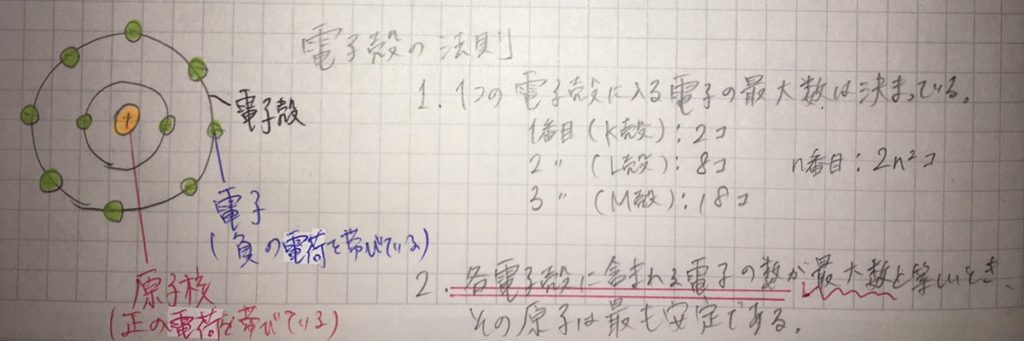 電子殻の法則
1. 1つの電子殻に入る電子の最大数は決まっている。
1番目(K殻):2コ
2 〃 (L殻):8コ n番目:2n²コ
3 〃 (M殻):18コ
2. 各電子殻に含まれる電子の数が最大数と等しいとき、
その原子は最も安定である。
電子殻
+
電子
(負の電荷を帯びている)
原子核
(正の電荷を帯びている)